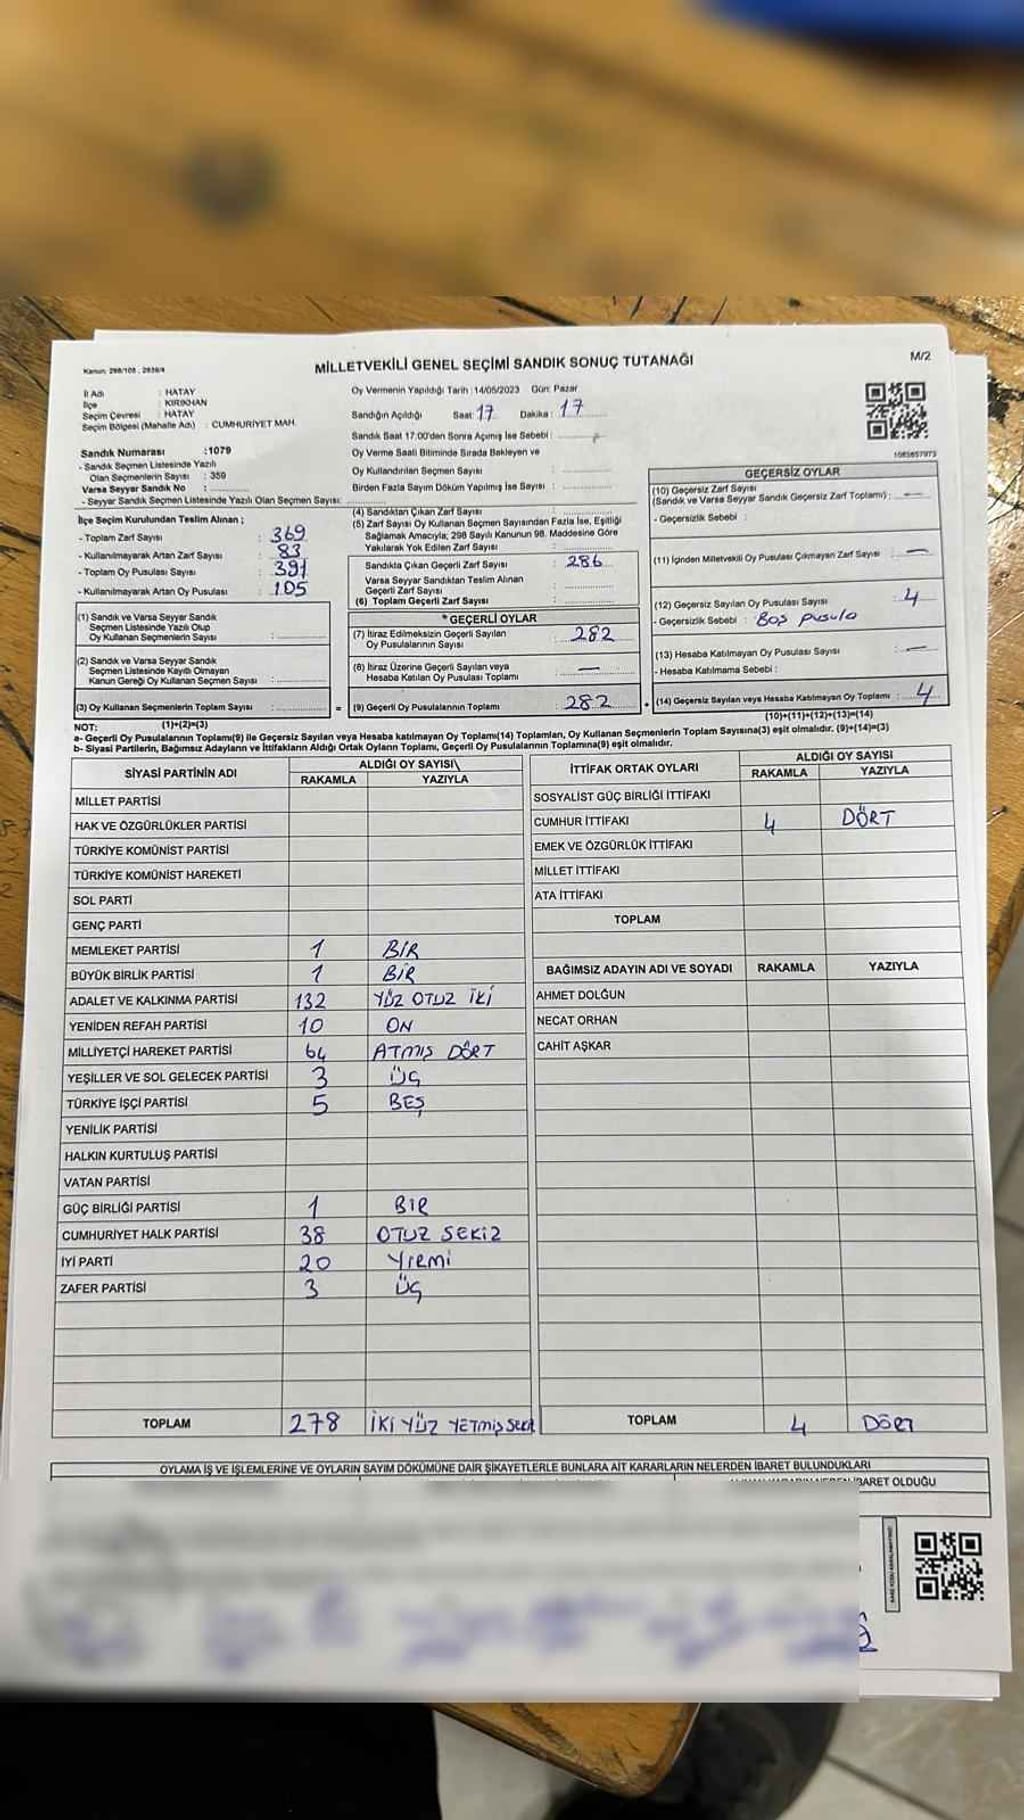 Kanun: 298/105 , 2839/4
MİLLETVEKİLİ GENEL SEÇİMİ SANDIK SONUÇ TUTANAĞI
M/2
İl Adı : HATAY
İlçe : KIRIKHAN
Seçim Çevresi : HATAY
Seçim Bölgesi (Mahalle Adı) : CUMHURİYET MAH.
Sandık Numarası :1079
- Sandık Seçmen Listesinde Yazılı
Olan Seçmenlerin Sayısı : 359
Varsa Seyyar Sandık No :
- Seyyar Sandık Seçmen Listesinde Yazılı Olan Seçmen Sayısı:
Oy Vermenin Yapıldığı Tarih :14/05/2023 Gün: Pazar
Sandığın Açıldığı Saat: 17 Dakika : 17
Sandık Saat 17:00'den Sonra Açımış İse Sebebi :
Oy Verme Saati Bitiminde Sırada Bekleyen ve
Oy Kullandırılan Seçmen Sayısı :
Birden Fazla Sayım Döküm Yapılmış İse Sayısı :
1083657973
İlçe Seçim Kurulundan Teslim Alınan ;
- Toplam Zarf Sayısı : 369
- Kullanılmayarak Artan Zarf Sayısı : 83
- Toplam Oy Pusulası Sayısı : 391
- Kullanılmayarak Artan Oy Pusulası : 105
(1) Sandık ve Varsa Seyyar Sandık
Seçmen Listesinde Yazılı Olup
Oy Kullanan Seçmenlerin Sayısı :
(2) Sandık ve Varsa Seyyar Sandık
Seçmen Listesinde Kayıtlı Olmayan
Kanun Gereği Oy Kullanan Seçmen Sayısı :
(3) Oy Kullanan Seçmenlerin Toplam Sayısı : =
(1)+(2)=(3)
(4) Sandıktan Çıkan Zarf Sayısı :
(5) Zarf Sayısı Oy Kullanan Seçmen Sayısından Fazla İse, Eşitliği
Sağlamak Amacıyla; 298 Sayılı Kanunun 98. Maddesine Göre
Yakılarak Yok Edilen Zarf Sayısı :
Sandıkta Çıkan Geçerli Zarf Sayısı : 286
Varsa Seyyar Sandıktan Teslim Alınan
Geçerli Zarf Sayısı :
(6) Toplam Geçerli Zarf Sayısı :
* GEÇERLİ OYLAR
(7) İtiraz Edilmeksizin Geçerli Sayılan
Oy Pusulalarının Sayısı : 282
(8) İtiraz Üzerine Geçerli Sayılan veya
Hesaba Katılan Oy Pusulası Toplamı : —
(9) Geçerli Oy Pusulalarının Toplamı : 282 +
GEÇERSİZ OYLAR
(10) Geçersiz Zarf Sayısı
(Sandık ve Varsa Seyyar Sandık Geçersiz Zarf Toplamı) : —
- Geçersizlik Sebebi :
(11) İçinden Milletvekili Oy Pusulası Çıkmayan Zarf Sayısı : —
(12) Geçersiz Sayılan Oy Pusulası Sayısı : 4
- Geçersizlik Sebebi : Boş pusula
(13) Hesaba Katılmayan Oy Pusulası Sayısı : —
- Hesaba Katılmama Sebebi :
(14) Geçersiz Sayılan veya Hesaba Katılmayan Oy Toplamı : 4
(10)+(11)+(12)+(13)=(14)
NOT:
a- Geçerli Oy Pusulalarının Toplamı(9) ile Geçersiz Sayılan veya Hesaba katılmayan Oy Toplamı(14) Toplamları, Oy Kullanan Seçmenlerin Toplam Sayısına(3) eşit olmalıdır. (9)+(14)=(3)
b- Siyasi Partilerin, Bağımsız Adayların ve İttifakların Aldığı Ortak Oyların Toplamı, Geçerli Oy Pusulalarının Toplamına(9) eşit olmalıdır.
SİYASİ PARTİNİN ADI ALDIĞI OY SAYISI
RAKAMLA YAZIYLA
MİLLET PARTİSİ
HAK VE ÖZGÜRLÜKLER PARTİSİ
TÜRKİYE KOMÜNİST PARTİSİ
TÜRKİYE KOMÜNİST HAREKETİ
SOL PARTİ
GENÇ PARTİ
MEMLEKET PARTİSİ 1 BİR
BÜYÜK BİRLİK PARTİSİ 1 BİR
ADALET VE KALKINMA PARTİSİ 132 YÜZ OTUZ İKİ
YENİDEN REFAH PARTİSİ 10 ON
MİLLİYETÇİ HAREKET PARTİSİ 64 ATMIŞ DÖRT
YEŞİLLER VE SOL GELECEK PARTİSİ 3 ÜÇ
TÜRKİYE İŞÇİ PARTİSİ 5 BEŞ
YENİLİK PARTİSİ
HALKIN KURTULUŞ PARTİSİ
VATAN PARTİSİ
GÜÇ BİRLİĞİ PARTİSİ 1 BİR
CUMHURİYET HALK PARTİSİ 38 OTUZ SEKİZ
İYİ PARTİ 20 Yirmi
ZAFER PARTİSİ 3 ÜÇ
TOPLAM 278 İKİ YÜZ YETMİŞ SEKİ
İTTİFAK ORTAK OYLARI ALDIĞI OY SAYISI
RAKAMLA YAZIYLA
SOSYALİST GÜÇ BİRLİĞİ İTTİFAKI
CUMHUR İTTİFAKI 4 DÖRT
EMEK VE ÖZGÜRLÜK İTTİFAKI
MİLLET İTTİFAKI
ATA İTTİFAKI
TOPLAM
BAĞIMSIZ ADAYIN ADI VE SOYADI RAKAMLA YAZIYLA
AHMET DOLĞUN
NECAT ORHAN
CAHİT AŞKAR
TOPLAM 4 DÖRT
OYLAMA İŞ VE İŞLEMLERİNE VE OYLARIN SAYIM DÖKÜMÜNE DAİR ŞİKAYETLERLE BUNLARA AİT KARARLARIN NELERDEN İBARET BULUNDUKLARI
İBARET OLDUĞU